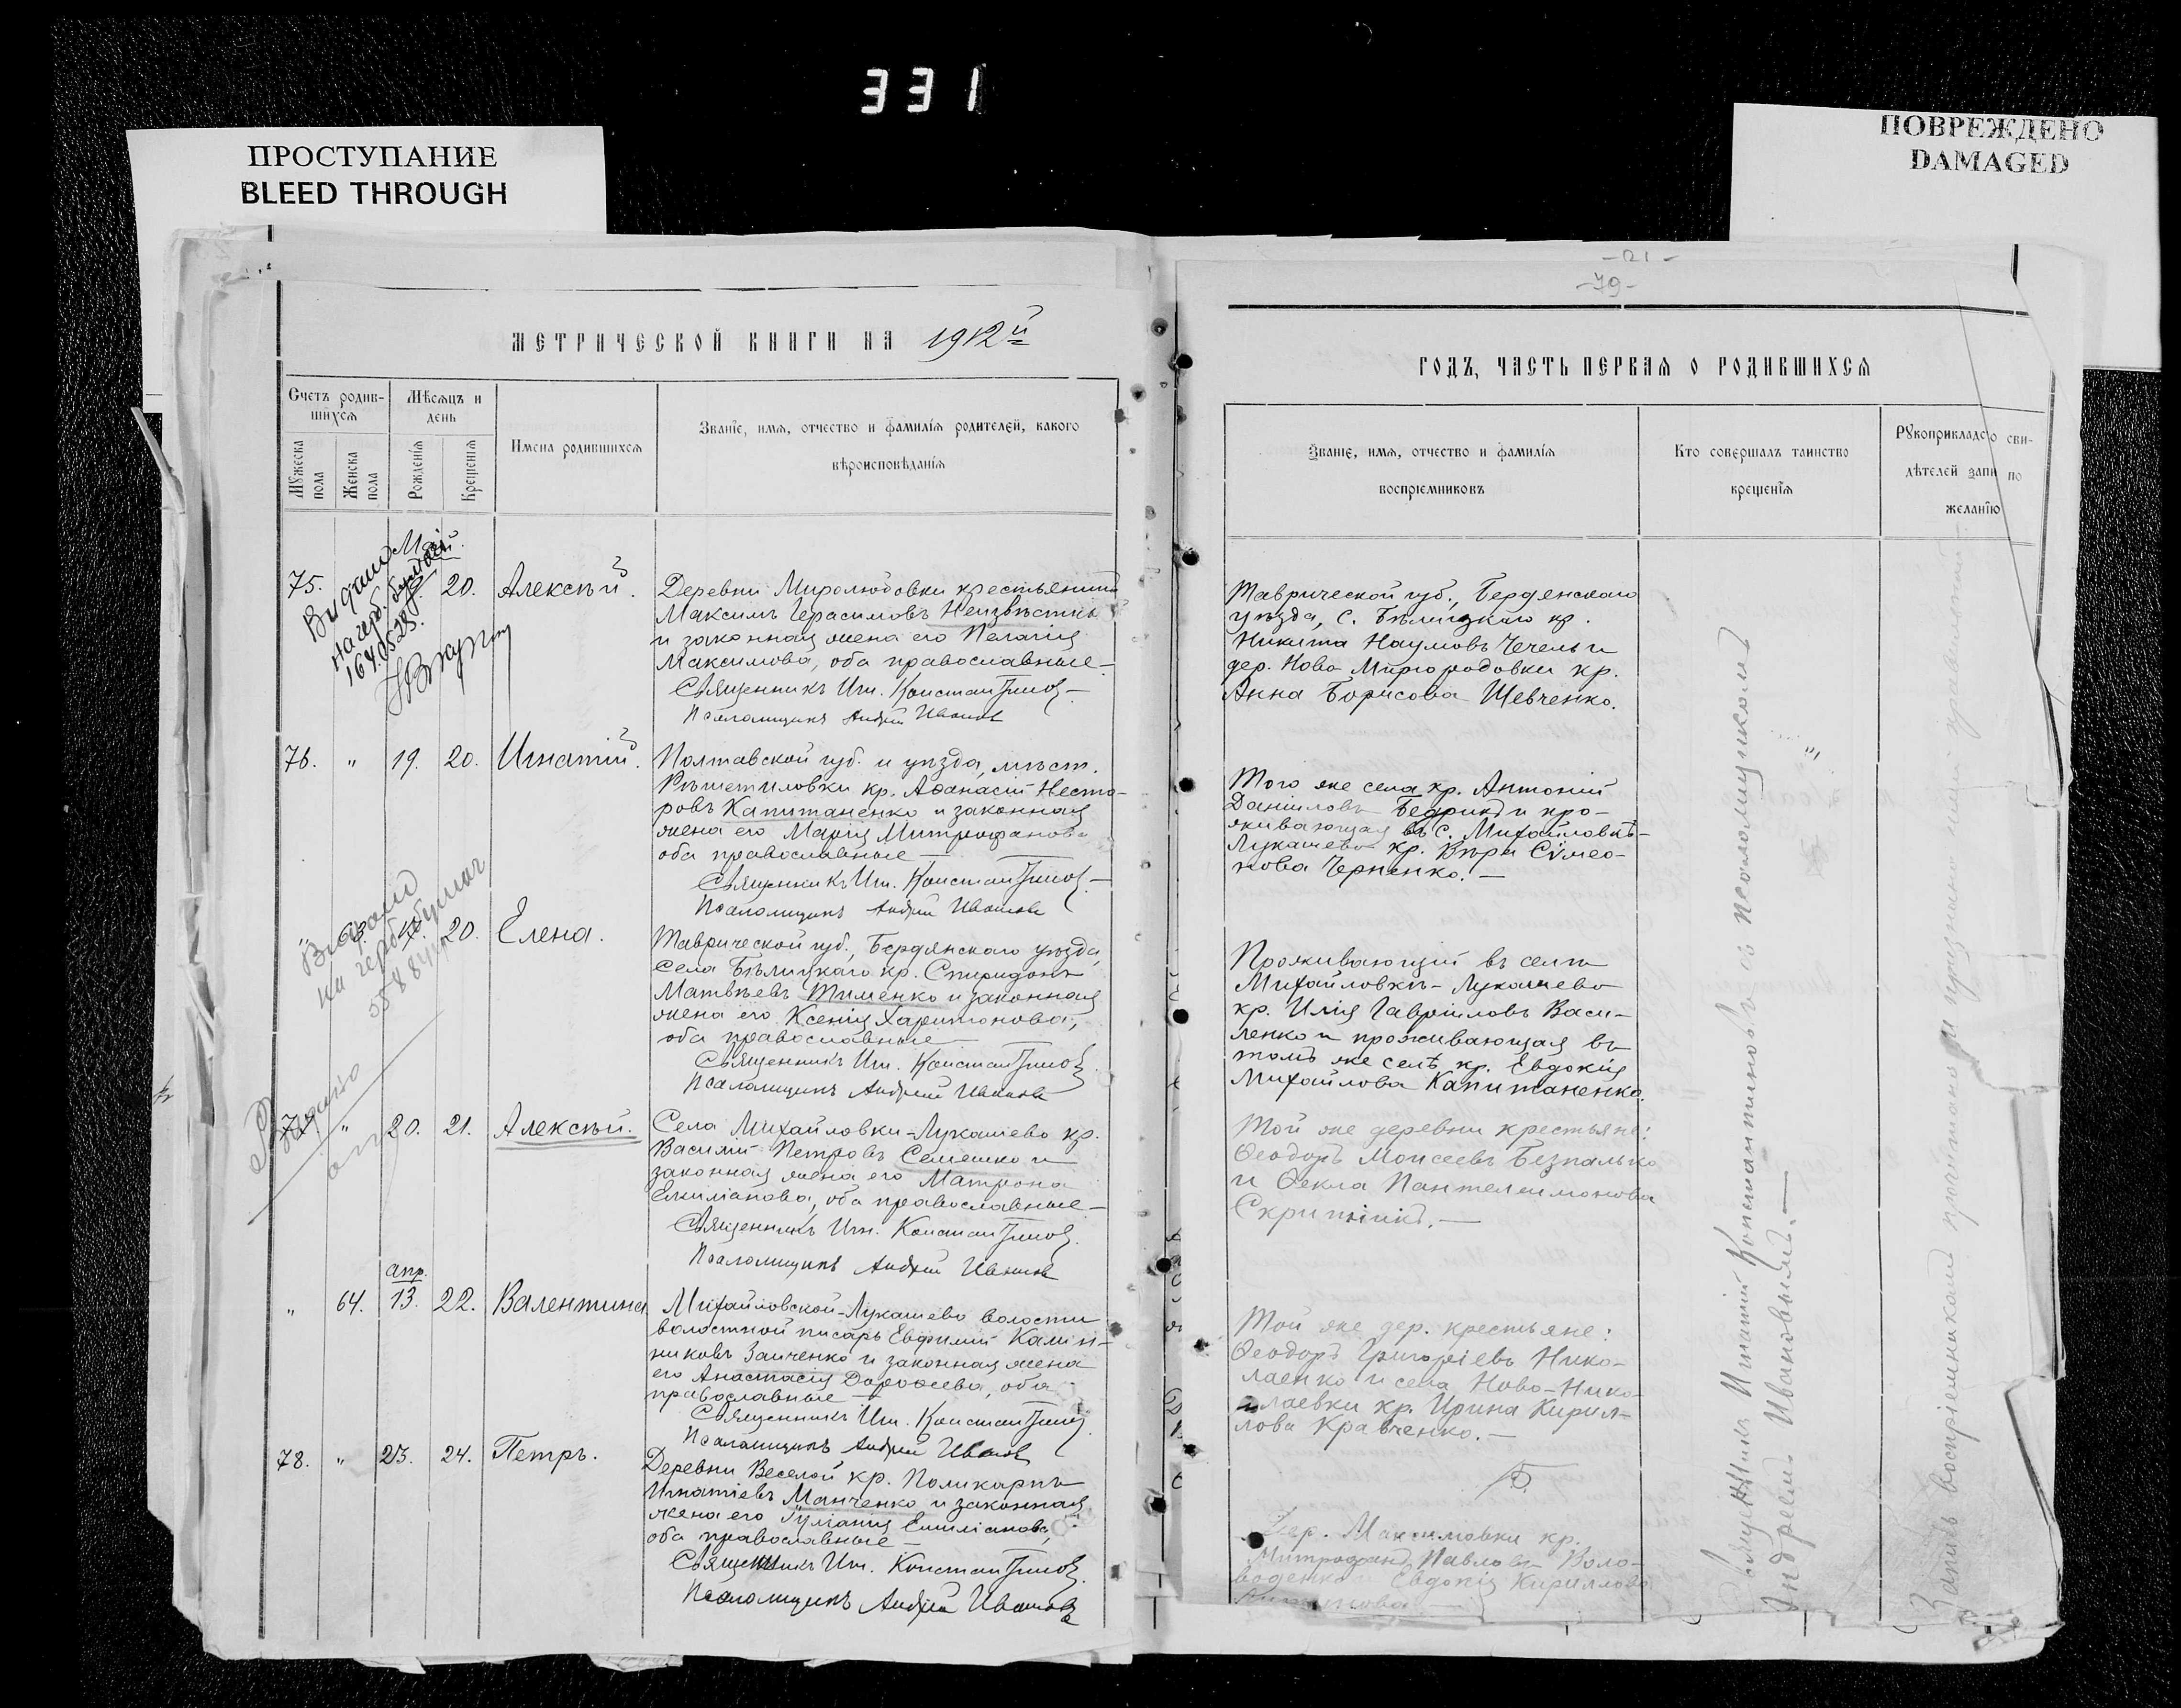 331
ПРОСТУПАНИЕ
BLEED THROUGH
ПОВРЕЖДЕНО
DAMAGED
МЕТРИЧЕСКОЙ КНИГИ НА 1912й
Счетъ родив-
шихся
Мѣсяцъ и
день
Мужеска
пола
Женска
пола
Рожденія
Крещенія
Имена родившихся
Званіе, имя, отчество и фамилія родителей, какого
вѣроисповѣданія
75.
20.
Алексѣй.
Деревни Миролюбовки крестьянинъ
Максимъ Герасимовъ Неизвѣстный
и законная жена его Пелагія
Максимова, оба православные
Священникъ Игн. Константиновъ
Псаломщикъ Андрей Ивановъ
76. " 19. 20. Игнатій.
Полтавской губ. и уѣзда, мѣст.
Рѣшетиловки кр. Аѳанасій Несто-
ровъ Капитаненко и законная
жена его Марія Митрофанова
оба православные
Священникъ Игн. Константиновъ
Псаломщикъ Андрей Ивановъ
" 63. 20. Елена.
Таврической губ., Бердянскаго уѣзда,
села Бѣлицкаго кр. Спиридонъ
Матвѣевъ Тименко и законная
жена его Ксенія Харитонова,
оба православные
Священникъ Игн. Константиновъ
Псаломщикъ Андрей Ивановъ
77. " 20. 21. Алексѣй.
Села Михайловки-Лукашево кр.
Василій Петровъ Семешко и
законная жена его Матрона
Емиліанова, оба православные
Священникъ Игн. Константиновъ
Псаломщикъ Андрей Ивановъ
апр.
" 64. 13. 22. Валентина
Михайловской-Лукашево волости
волостной писарь Евфимій Калин-
никовъ Заиченко и законная жена
его Анастасія Дороѳеева, оба
православные
Священникъ Игн. Константиновъ
Псаломщикъ Андрей Ивановъ
78. " 23. 24. Петръ.
Деревни Веселой кр. Поликарпъ
Игнатіевъ Манченко и законная
жена его Іуліанія Емиліанова,
оба православные
Священникъ Игн. Константиновъ
Псаломщикъ Андрей Ивановъ
-79-
ГОДЪ, ЧАСТЬ ПЕРВАЯ О РОДИВШИХСЯ
Званіе, имя, отчество и фамилія
воспріемниковъ
Кто совершалъ таинство
крещенія
Рукоприкладство сви-
дѣтелей записи по
желанію
Таврической губ., Бердянскаго
уѣзда, с. Бѣлицкаго кр.
Никита Наумовъ Чечель и
дер. Ново-Миргородовки кр.
Анна Борисова Шевченко.
Того же села кр. Антоній
Даніиловъ Бедрикъ и про-
живающая въ с. Михайловкѣ-
Лукашево кр. Вѣра Сѵмео-
нова Черненко.
Проживающій въ селѣ
Михайловкѣ-Лукашево
кр. Илія Гавріиловъ Васи-
ленко и проживающая въ
томъ же селѣ кр. Евдокія
Михайлова Капитаненко.
Той же деревни крестьяне:
Ѳеодоръ Моисеевъ Безпалько
и Ѳекла Пантелеимонова
Той же дер. крестьяне:
Ѳеодоръ Григоріевъ Нико-
лаенко и села Ново-Нико-
лаевки кр. Ирина Кирил-
лова Кравченко.
Дер. Максимовки кр.
Митрофанъ Павловъ Воло-
воденко и Евдокія Кириллова
Священникъ Игнатій Константиновъ съ псаломщикомъ
Андреемъ Ивановымъ.